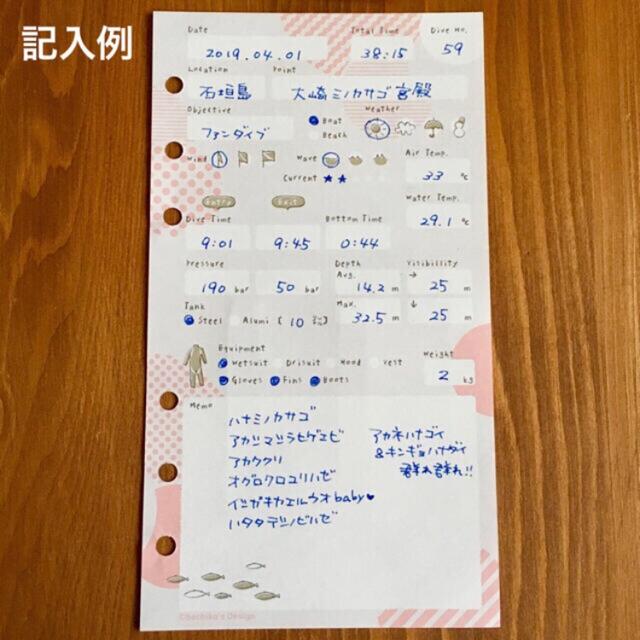 記入例
Date Total Time Dive No.
2019.04.01 38:15 59
Location Point
石垣島 大崎ミノカサゴ宮殿
Objective Boat Weather
ファンダイブ Beach
Wind Wave Air Temp.
Current ★★ 33 ℃
Entry Exit Water Temp.
Dive Time Bottom Time 29.1 ℃
9:01 9:45 0:44
Pressure Depth Visibillity
190 bar 50 bar Avg. 14.2 m → 25 m
Tank Max.
Steel Alumi [ 10 ] 32.5 m ↓ 25 m
Equipment Weight
Wetsuit Drisuit Hood Vest
Gloves Fins Boots 2 kg
Memo
ハナミノカサゴ
アカシマシラヒゲエビ
アカククリ
オグロクロユリハゼ
イシガキカエルウオbaby♥
ハタタテシノビハゼ
アカネハナゴイ
&キンギョハナダイ
群れ群れ!!
©hachika's Design